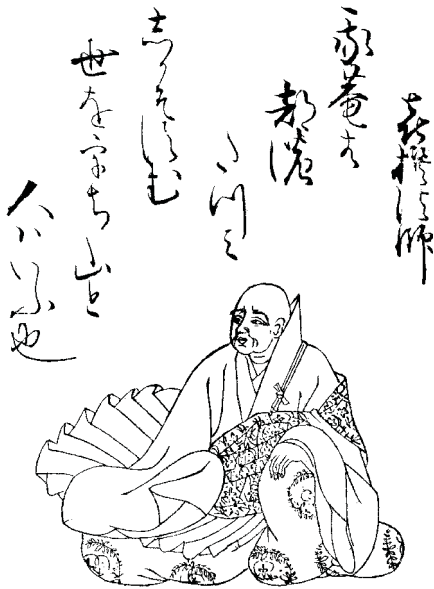 喜撰法師
我庵は
都濃
たつみ
しかそすむ
世をうち山と
人ハいふ也